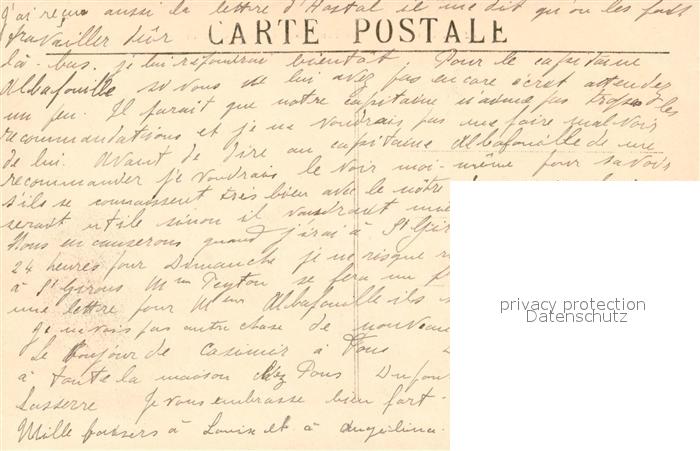 J'ai reçu aussi la lettre d'Hostal il me dit qu'on les fait
travailler dur
CARTE POSTALE
là-bas, je lui répondrai bientôt. Pour le capitaine
Albafouille si vous ne lui avez pas encore écrit attendez
un peu. Il parait que notre capitaine n'aime pas trop les
recommandations et je ne voudrais pas me faire mal voir
de lui. Avant de dire au capitaine Albafouille de me
recommander je voudrais le voir moi-même pour savoir
s'ils se connaissent très bien avec le nôtre
serait utile sinon il vaudrait
Nous en causerons quand j'irai à St Gir
24 heures pour Dimanche je ne risque
à St Girons Mme Peyton se fera un
une lettre pour Mme Albafouille ils
Je ne vois pas autre chose de nouveau
Le bonjour de Casimir à Tous
à toute la maison chez Pons Dufour
Lasserre Je vous embrasse bien fort.
Mille baisers à Louise et à Angelina.
privacy protection
Datenschutz